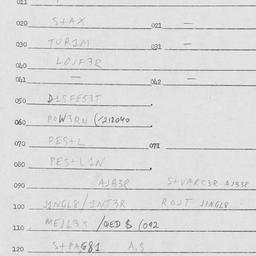 011
020 S+AX 021 —
030 TUR1M 031 —
040 LOJF3R
061 — 062 —
050 D1SFE53T
060 POW3RN (1212040
070 PES+L 071
080 PES+L1N
090 AJB3R S+VARC3R AJB3R
100 J1NGL8/1NT3R ROUT JINGL8
110 MEJL3R /QED $ (092
120 S+PAG81 A,S